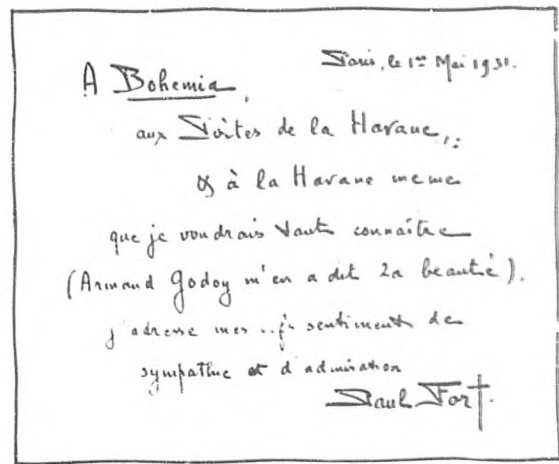 Paris, le 1er Mai 1931.
A Bohemia,
aux Poètes de la Havane,
& à la Havane meme
que je voudrais tant connaître
(Armand Godoy m'en a dit la beauté).
j'adresse mes sentiments de
sympathie et d'admiration
Paul Fort.